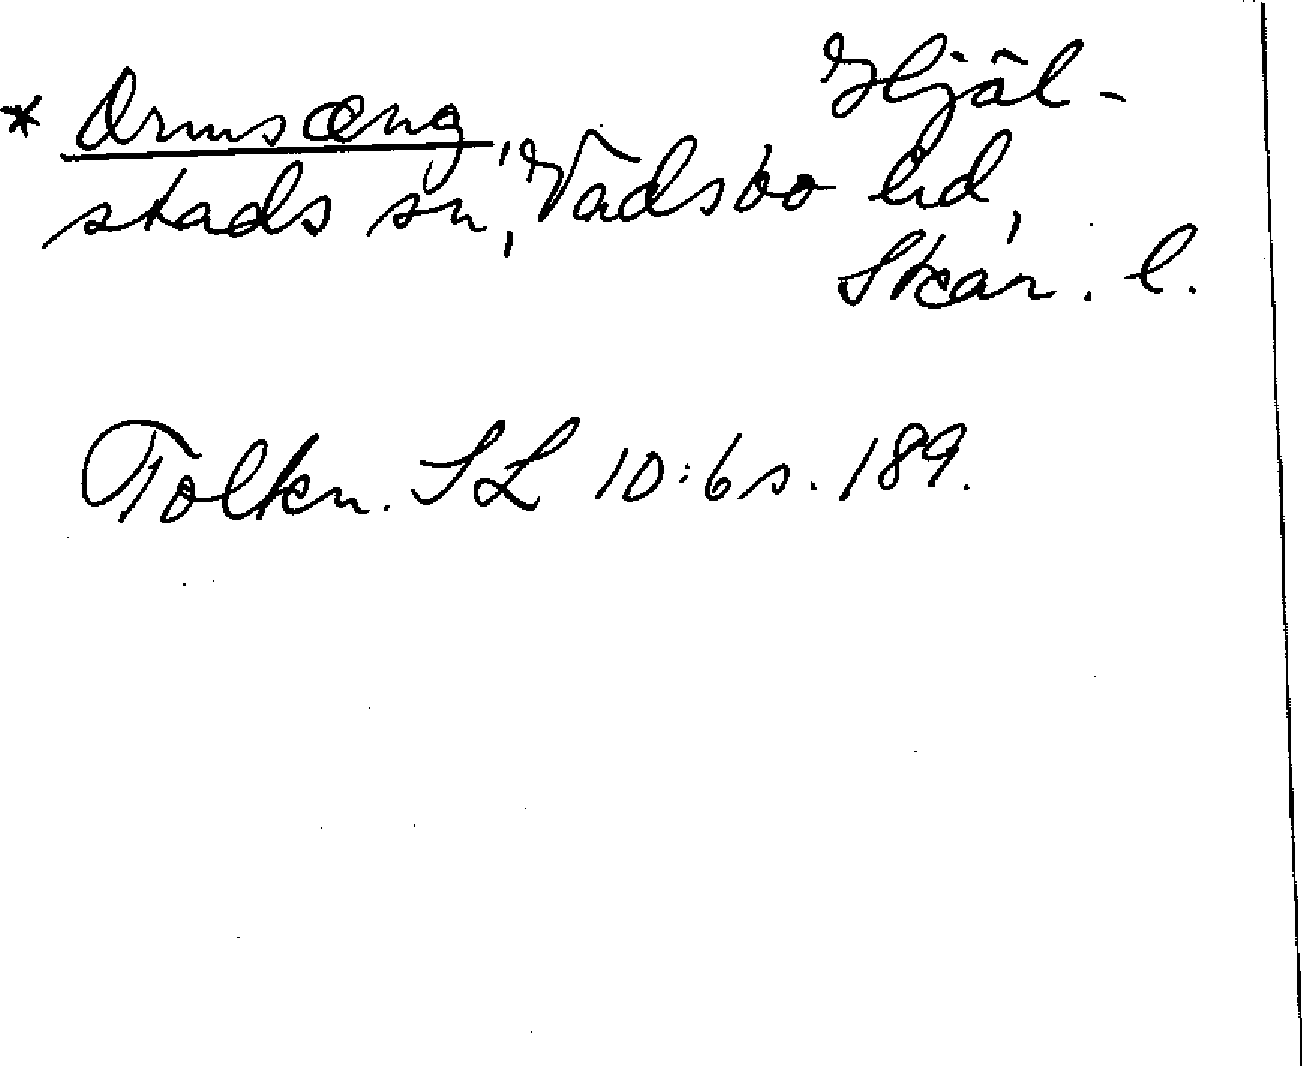 * Ormsæng, Hjäl-
stads sn, Vadsbo hd,
Skar. l.
Tolkn. SL 10:6 s. 189.